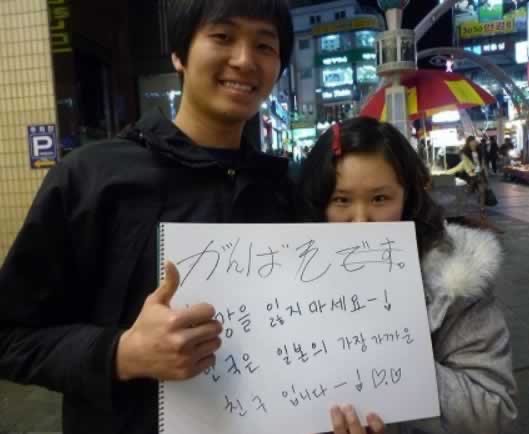 がんばそです。
망을 잃지마세요-!
한국은 일본의 가장 가까운
친구 입니다-! ♡.♡
P